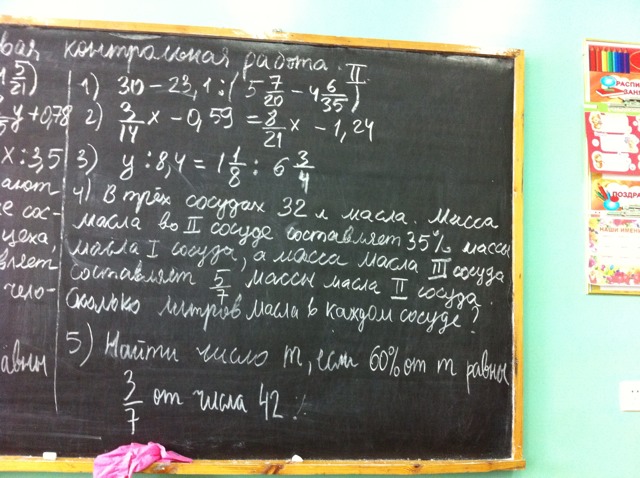 вая контрольная работа. II
5/21)
1) 30 - 23,1 : (5 7/20 - 4 6/35)
y + 0,78
2) 3/14 x - 0,59 = 8/21 x - 1,24
x : 3,5
3) y : 8,4 = 1 1/8 : 6 3/4
4) В трёх сосудах 32 л масла. Масса
масла во II сосуде составляет 35% массы
масла I сосуда, а масса масла III сосуда
составляет 5/7 массы масла II сосуда.
Сколько литров масла в каждом сосуде?
ают
сос-
цеха,
вляет
чело-
5) Найти число m, если 60% от m равны
3/7 от числа 42.
авны
РАСПИ
ЗАНЯ
ПОЗДРА
НАШИ ИМЕНИ